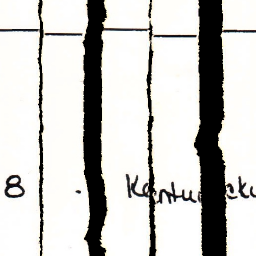 8 . Kentucky